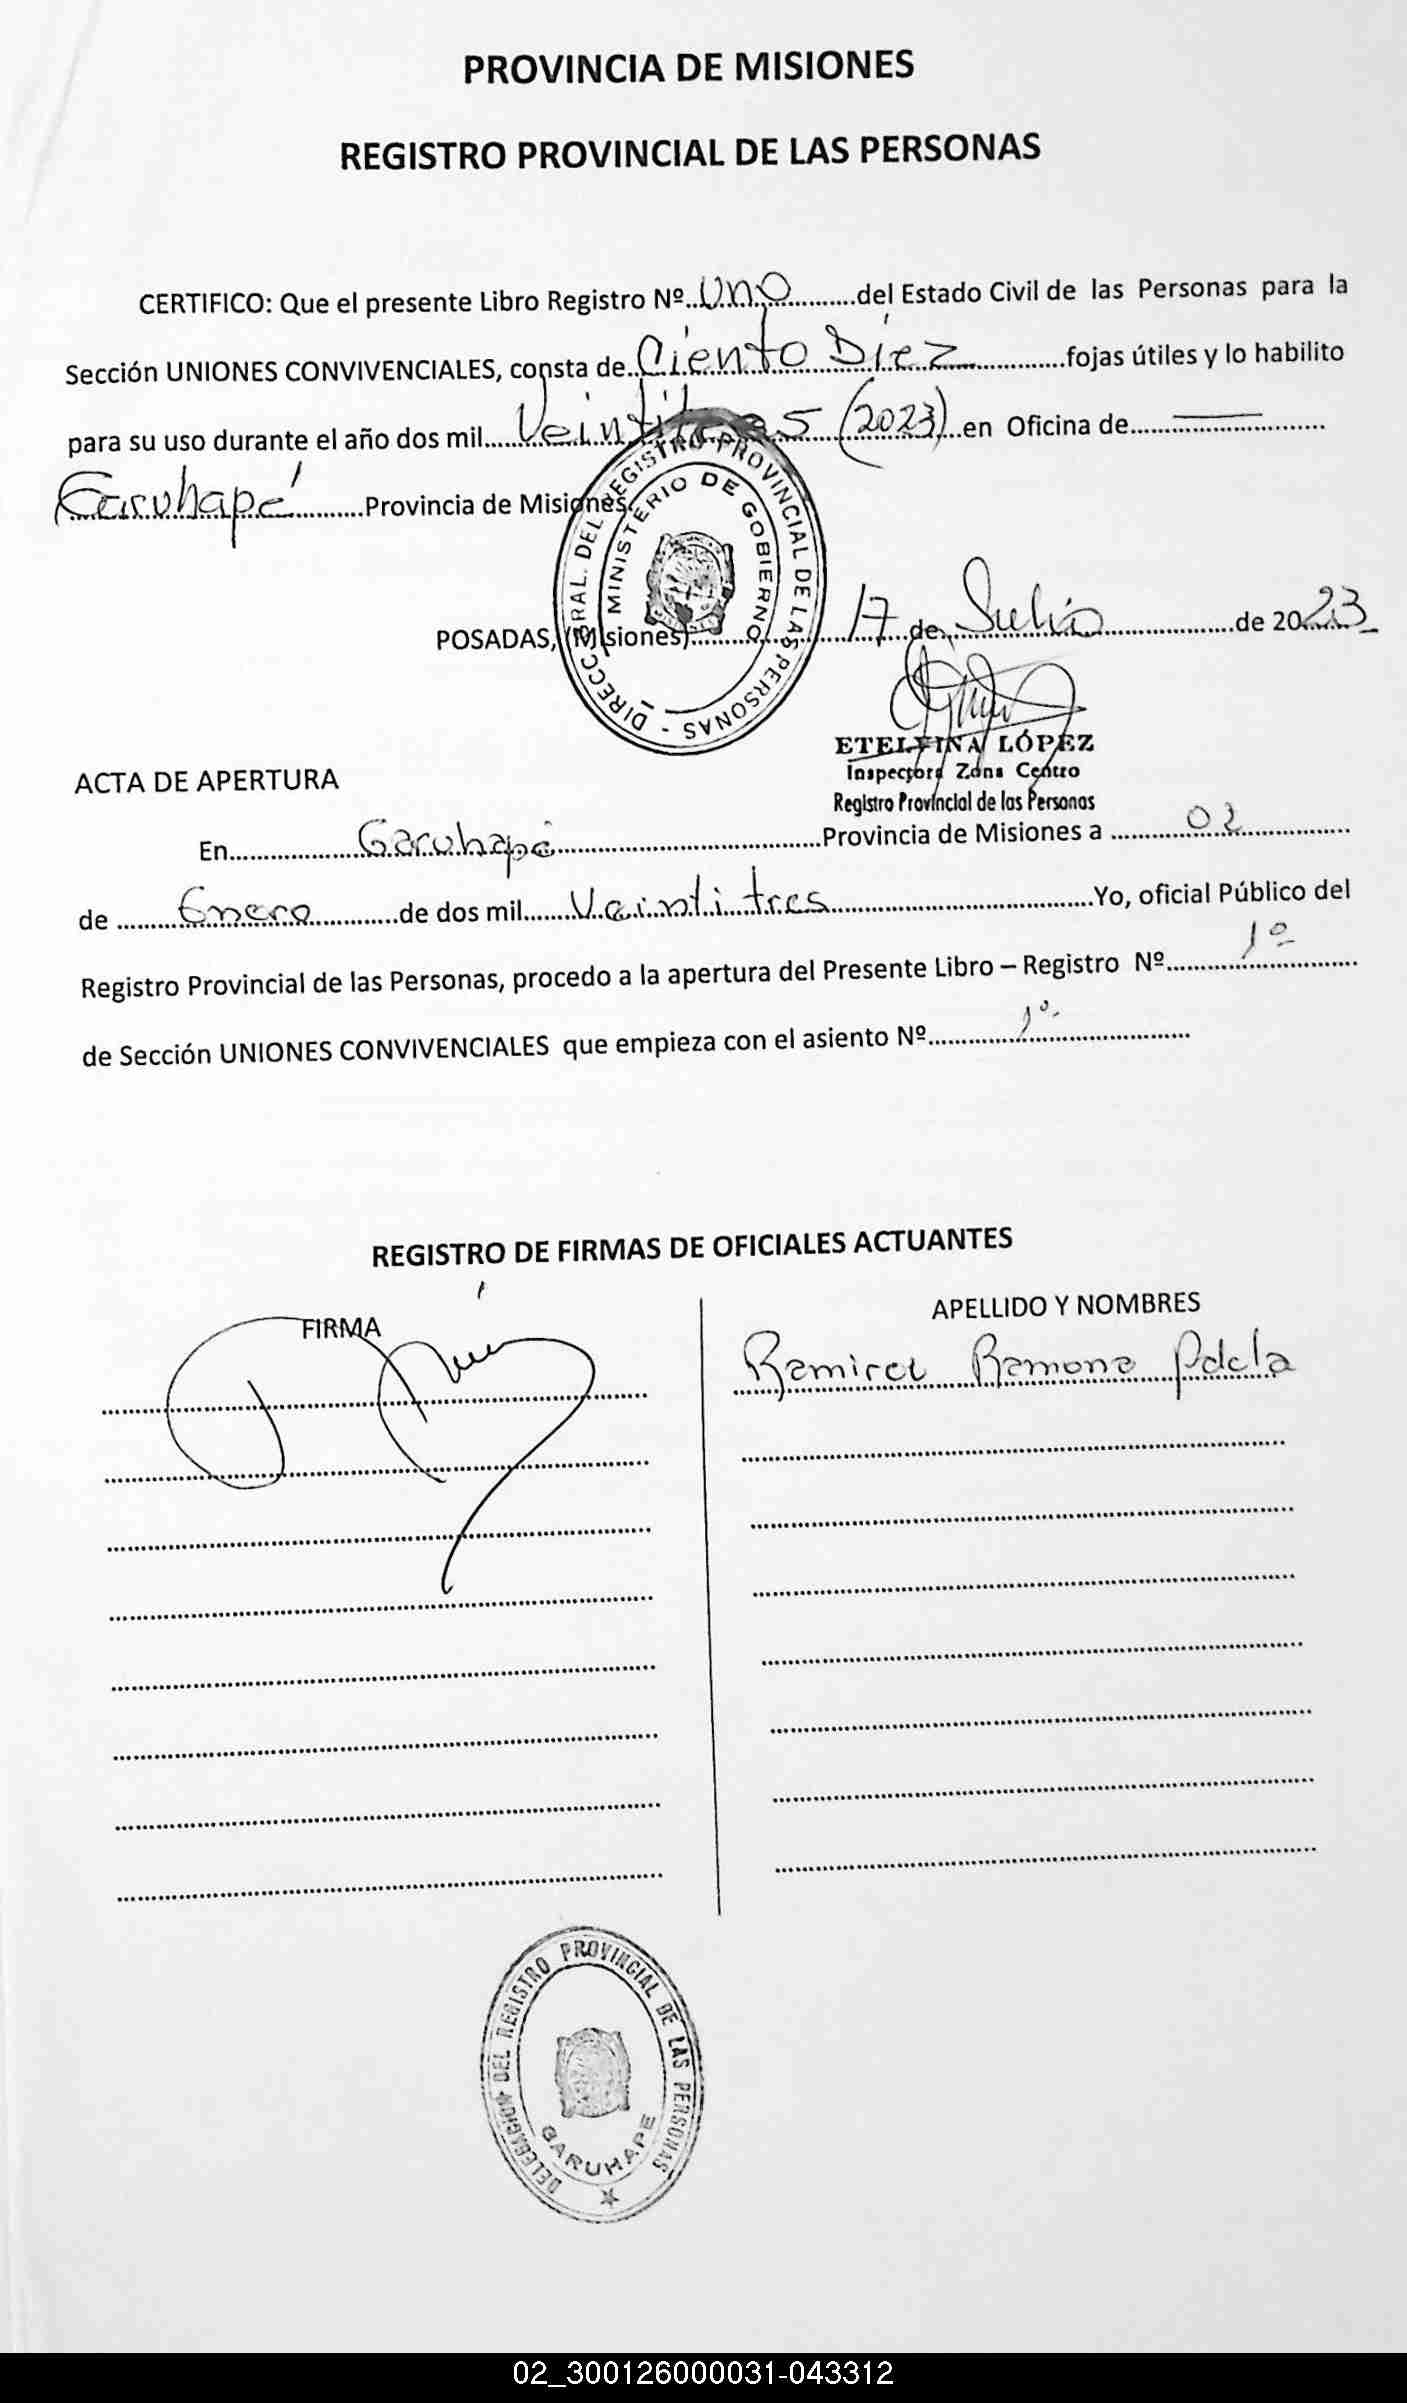 PROVINCIA DE MISIONES
REGISTRO PROVINCIAL DE LAS PERSONAS
CERTIFICO: Que el presente Libro Registro Nº..Uno..........del Estado Civil de las Personas para la
Sección UNIONES CONVIVENCIALES, consta de..Ciento Diez.............fojas útiles y lo habilito
para su uso durante el año dos mil.....Veintitres (2023)...en Oficina de..........................
Garuhapé..........Provincia de Misiones.
DIRECC. GRAL. DEL REGISTRO PROVINCIAL DE LAS PERSONAS -
MINISTERIO DE GOBIERNO
POSADAS, (Misiones)....................17...de....Julio..................de 2023
ETELFINA LÓPEZ
Inspectora Zona Centro
Registro Provincial de las Personas
ACTA DE APERTURA
En...................Garuhapé......................................Provincia de Misiones a ...........02................
de .........Enero............de dos mil.......Veintitres......................................Yo, oficial Público del
Registro Provincial de las Personas, procedo a la apertura del Presente Libro – Registro Nº...........1º.............
de Sección UNIONES CONVIVENCIALES que empieza con el asiento Nº.............1º......................
REGISTRO DE FIRMAS DE OFICIALES ACTUANTES
FIRMA
APELLIDO Y NOMBRES
Ramirez Ramona Adela
DELEGACION DEL REGISTRO PROVINCIAL DE LAS PERSONAS
GARUHAPE
02_300126000031-043312